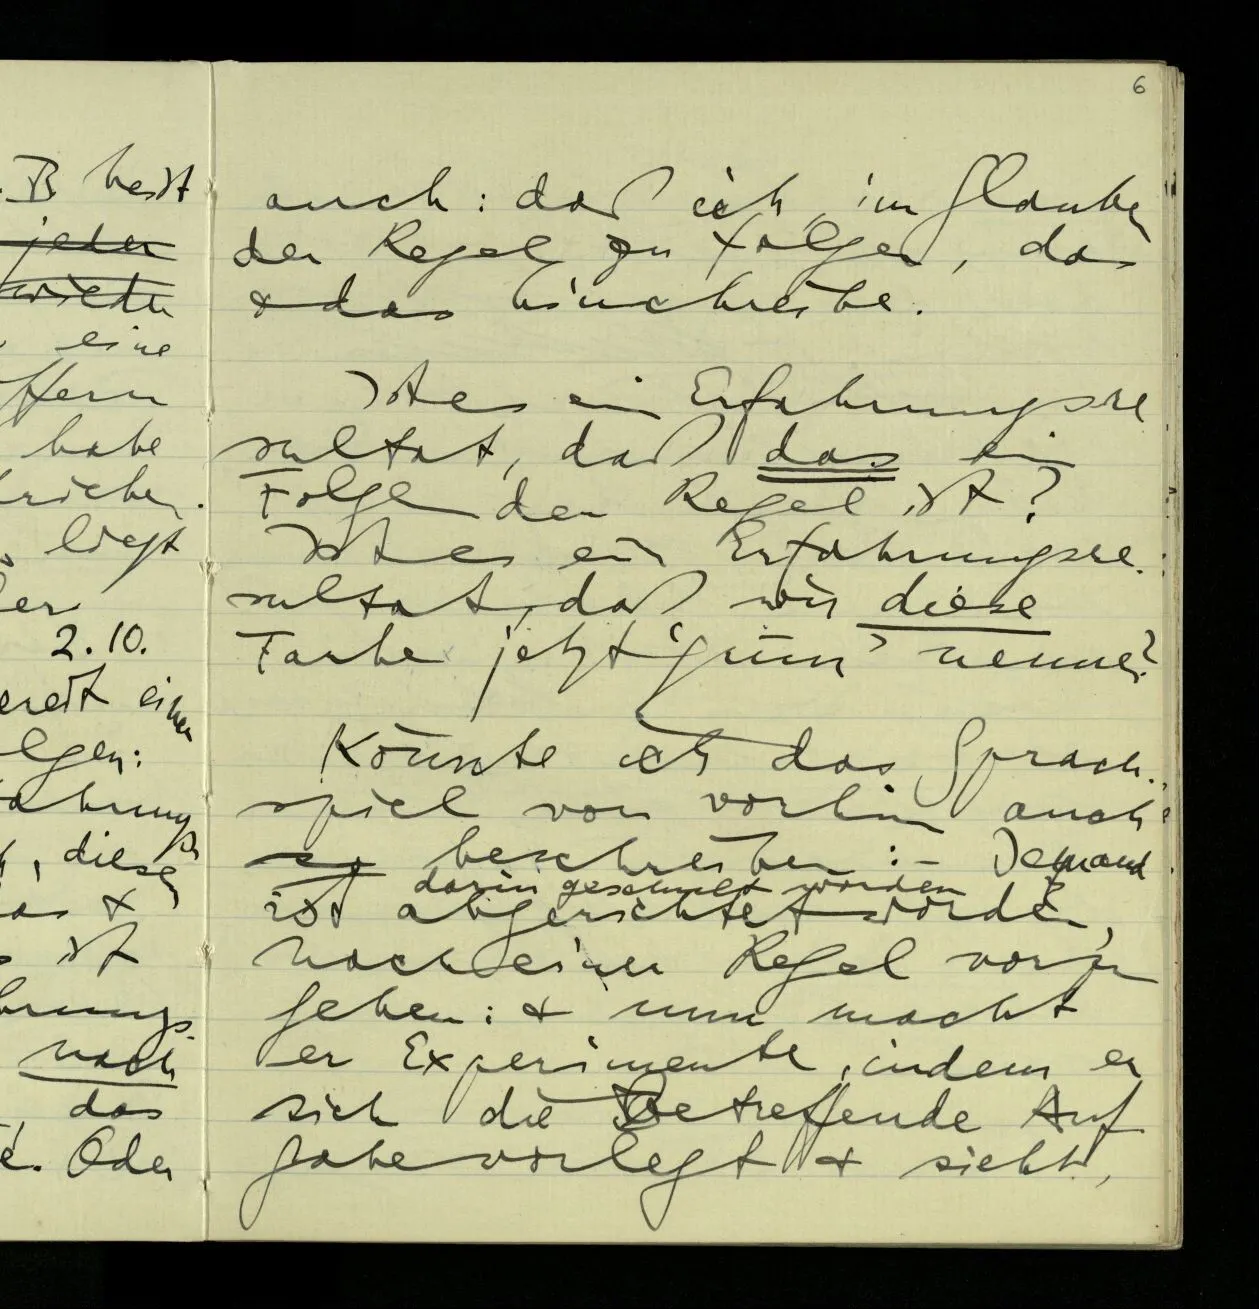 6
B heißt
jeder
wieder
eine
ffern
habe
rieben.
liegt
er
2.10.
ereit einen
lgen:
fahrungs
, diesen
as &
ist
hrungs-
nach
das
Oder
auch: daß ich, im Glauben
der Regel zu folgen, das
& das hinschreibe.
Ist es ein Erfahrungsre
sultat, daß das die
Folge der Regel ist?
Ist es ein Erfahrungsre-
sultat, daß wir diese
Farbe jetzt 'grün' nennen?
Könnte ich das Sprach-
spiel von vorhin auch
so beschreiben: – Jemand
darin geschult worden
ist abgerichtet worden,
nach einer Regel vorzu
gehen: & nun macht
er Experimente, indem er
sich die Betreffende Auf
gabe vorlegt & sieht,